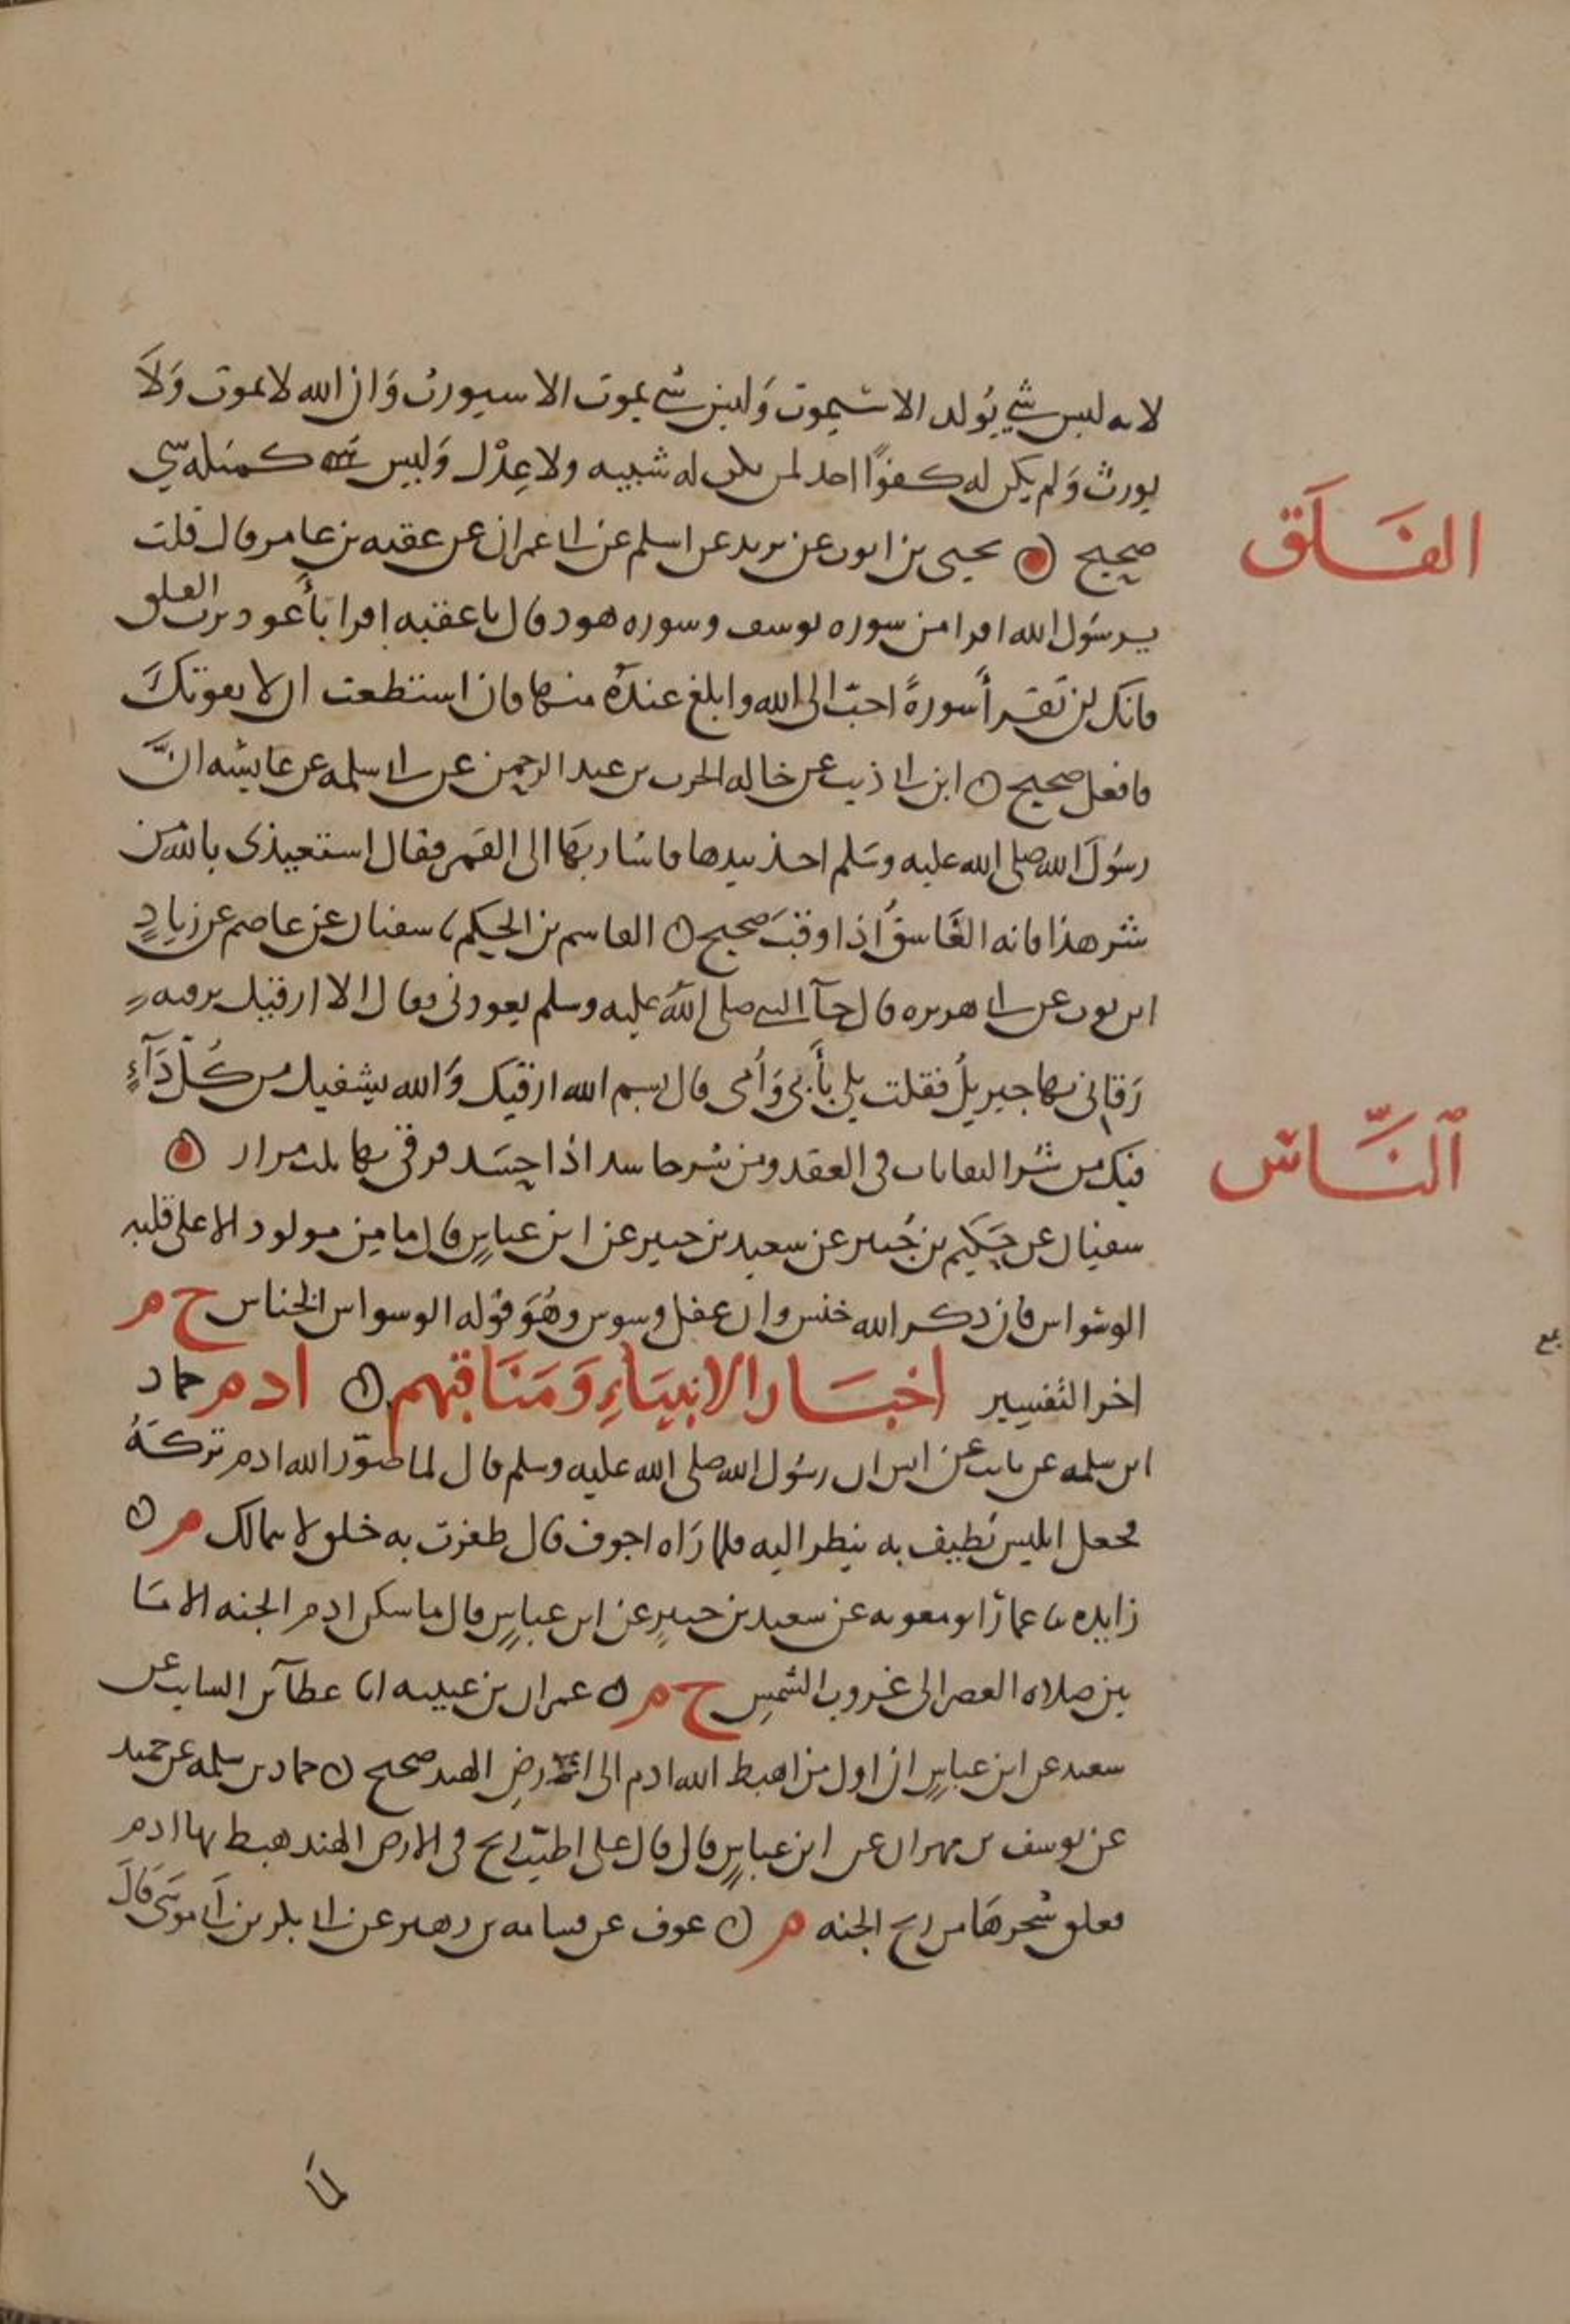 لانه ليس شي يُولد الا سيموت وَليس شي يموت الا سيورث وَان الله لا يموت وَلَا
يورث وَلم يكن له كفوًا احد لم يكن له شبيه ولا عِدْل وَليس كمثله شي
صحيح ۞ يحيى بن ايوب عن يزيد عن اسلم عن ابى عمران عن عقبه بن عامر قال قلت
الفَلَق
يرسُول الله اقرا من سوره يوسف وسوره هود قال يا عقبه اقرا بأَعوذ برب الفلق
فانك لن تَقرأ سورةً احبّ الى الله وابلغ عندهُ منها فان استطعت ان لا يفوتكَ
فافعل صحيح ۞ ابن ابى ذيب عن خاله الحرث بن عبد الرحمن عن ابى سلمه عن عايشه انَّ
رسُولَ الله صلى الله عليه وسَلم اخذ بيدها فاشار بهَا الى القمر فقال استعيذى بالله من
شر هذا فانه الغَاسقُ اذا وقبَ صحيح ۞ القاسم بن الحكم ثنا سفيان عن عاصم عن زيادٍ
ابن ثويب عن ابى هريره قال جآ النبى صلى اللهُ عليه وسلم يعودنى فقال الا ارقيك برقيه
رَقانى بها جبريلُ فقلت بلى بأَبى وَأُمى قال بسم الله ارقيك وَالله يشفيك من كُلّ دَآءٍ
فيك من شر النفاثات فى العقد ومن شر حاسد اذا حَسَد فرقى بها ثلث مرار ۞
النَّاس
سفيان عن حَكيم بن جُبير عن سعيد بن جبير عن ابن عباسٍ قال ما مِن مولود الا على قلبه
الوسْواس فان ذكر الله خنس وان غفل وسوس وهُوَ قوله الوسواس الخناس خ م
اخر التفسير اخبَار الانبيَاءِ وَمَنَاقبهم ۞ ادم حماد
ابن سلمه عن ثابت عن انس ان رسُول الله صلى الله عليه وسلم قال لما صَوّر الله ادم تركَهُ
فجعل ابليس يُطيف به ينظر اليه فلما رَاه اجوف قال ظفرت به خلق لا يتمالك م ۞
زايده ثنا عمار ابو معويه عن سعيد بن جبيرٍ عن ابن عباسٍ قال ما سكن ادم الجنه الا مَا
بين صلاه العصر الى غروب الشمسِ خ م ۞ عمران بن عيينه انا عطآ بن السايب عن
سعيد عن ابن عباسٍ ان اول من اهبط الله ادم الى ارضِ الهند صحيح ۞ حماد بن سلمه عن حميد
عن يوسف بن مهران عن ابن عباسٍ قال قال على اطيب ريح فى الارض الهند هبط بها ادم
فعلق شجرهَا من ريح الجنه م ۞ عوف عن قسامه بن زهير عن ابى بكر بن ابى موسَى قالَ
لما